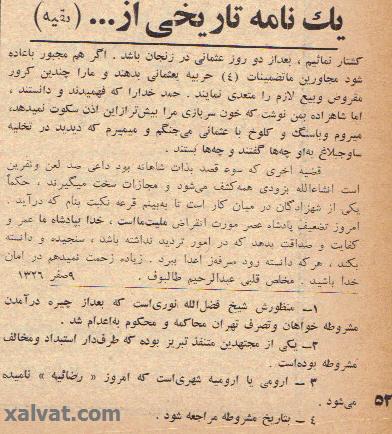 یك نامه تاریخی از... (بقیه)
کشتار نمائیم ، بعداز دو روز عثمانی در زنجان باشد . اگر هم مجبور باعاده
شود مجاورین ماتضمینات (۴) حربیه بعثمانی بدهند و مارا چندین کرور
مقروض وبیع لازم را متعدی نمایند . حمد خدارا که فهمیدند و دانستند ،
اما شاهزاده بمن نوشت که خون سربازی مرا بیش‌ترازاین اذن سکوت نمیدهد،
میروم وباسنگ و کلوخ با عثمانی می‌جنگم و میمیرم که دیدید در تخلیه
ساوجبلاغ به‌او چه‌ها گفتند و چه‌ها بستند .
قضیه آخری که سوء قصد بذات شاهانه بود داعی صد لعن ونفرین
است انشاءالله بزودی همه‌کشف می‌شود و مجازات سخت میگیرند ، حکماً
یکی از شهزادگان در میان کار است تا به‌بینم قرعه نکبت بنام که درآید .
امروز تضعیف پادشاه عصر مورث انقراض ملیت‌ماست ، خدا بپادشاه ما عمر و
کفایت و صداقت بدهد که در امور تردید نداشته باشد ، سنجیده و دانسته
بکند ، هرکه دانسته رود صرفه‌ز اعدا ببرد . زیاده زحمت نمیدهم در امان
خدا باشید . مخلص قلبی عبدالرحیم طالبوف . ۹صفر ۱۳۲۶
۱ــ منظورش شیخ فضل‌الله نوری‌است که بعداز چیره درآمدن
مشروطه خواهان وتصرف تهران محاکمه و محکوم به‌اعدام شد .
۲ــ یکی از مجتهدین متنفذ تبریز بوده که طرف‌دار استبداد ومخالف
مشروطه بوده‌است .
۳ ــ ارومی یا ارومیه شهری‌است که امروز « رضائیه » نامیده
می‌شود .
۴ ــ بتاریخ مشروطه مراجعه شود .
۵۲
xalvat.com